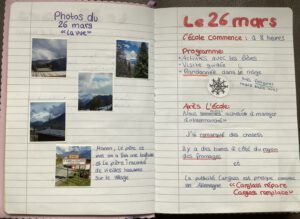 Photos du
26 mars
"La vue"
Manon, le père et
moi on a fait une balade
et le père trouvait
de vieilles maisons
sur le village
Le 26 mars
L'École commence : à 8 heures
Programme:
- Activités avec les élèves
- Visite guidée
- Randonnée dans la neige
Après L'École:
Nous sommes acheter à manger
J'ai remarqué des chalets
il y a des bières d'un côté du rayon
des fromages
et
La publicité Carglass est presque comme
en Allemagne "Carglass répare
Carglass remplace"